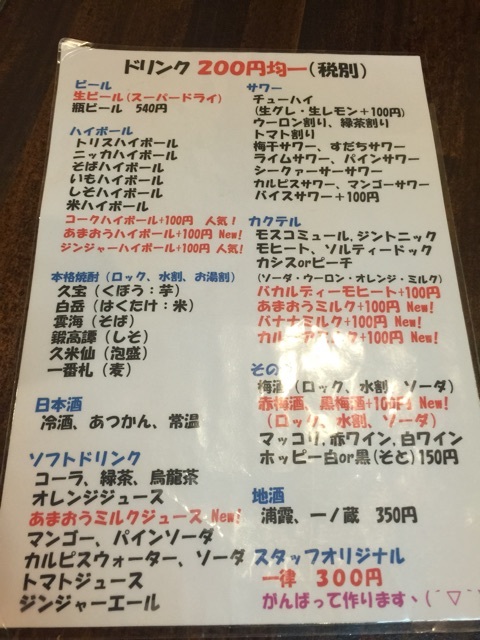 ドリンク 200円均一(税別)
ビール
生ビール(スーパードライ)
瓶ビール 540円
ハイボール
トリスハイボール
ニッカハイボール
そばハイボール
いもハイボール
しそハイボール
米ハイボール
コークハイボール+100円 人気!
あまおうハイボール+100円 New!
ジンジャーハイボール+100円 人気!
本格焼酎(ロック、水割、お湯割)
久宝(くぼう:芋)
白岳(はくたけ:米)
雲海(そば)
鍛高譚(しそ)
久米仙(泡盛)
一番札(麦)
日本酒
冷酒、あつかん、常温
ソフトドリンク
コーラ、緑茶、烏龍茶
オレンジジュース
あまおうミルクジュース New!
マンゴー、パインソーダ
カルピスウォーター、ソーダ
トマトジュース
ジンジャーエール
サワー
チューハイ
(生グレ・生レモン+100円)
ウーロン割り、緑茶割り
トマト割り
梅干サワー、すだちサワー
ライムサワー、パインサワー
シークァーサーサワー
カルピスサワー、マンゴーサワー
バイスサワー+100円
カクテル
モスコミュール、ジントニック
モヒート、ソルティードック
カシスorピーチ
(ソーダ・ウーロン・オレンジ・ミルク)
バカルディーモヒート+100円
あまおうミルク+100円 New!
バナナミルク+100円 New!
+100円 New!
その
梅酒(ロック、水割、ソーダ)
赤梅酒、黒梅酒+100円 New!
(ロック、水割、ソーダ)
マッコリ,赤ワイン,白ワイン
ホッピー白or黒(そと)150円
地酒
浦霞、一ノ蔵 350円
スタッフオリジナル
一律 300円
がんばって作ります、(´▽`